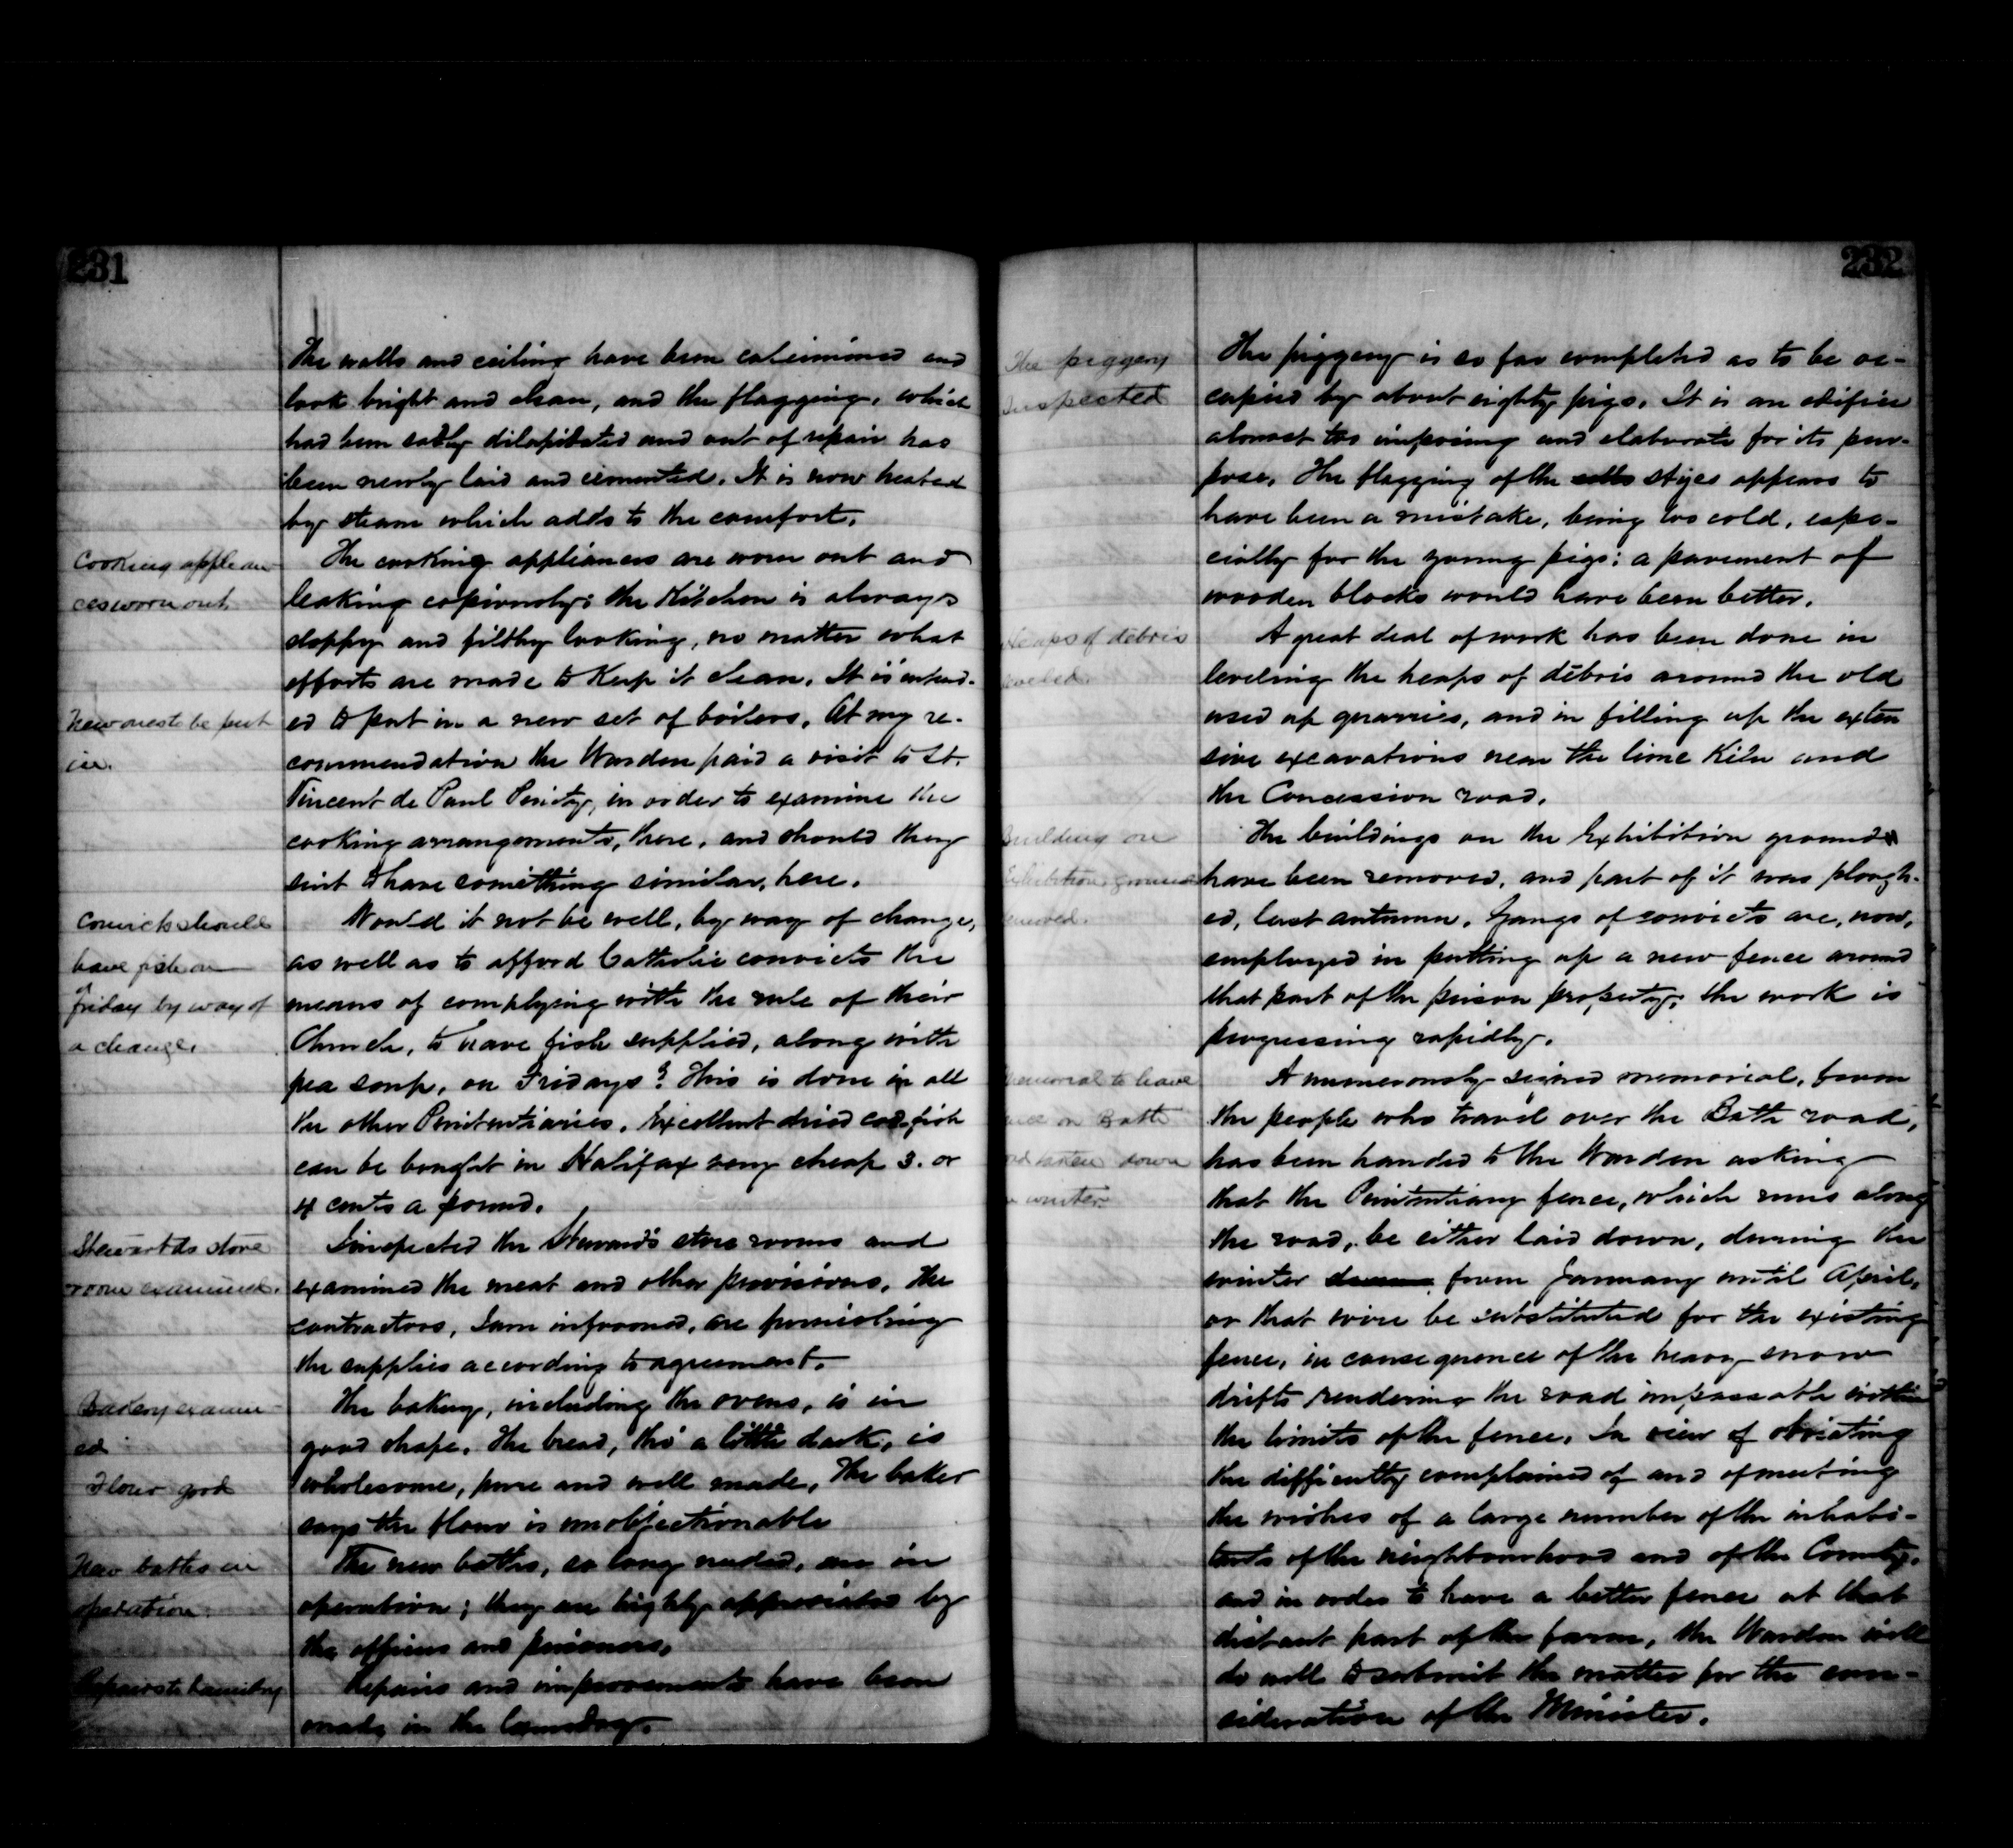 231
The walls and ceiling have been calcimined and
look bright and clean, and the flagging, which
had been sadly dilapidated and out of repair has
been newly laid and cemented. It is now heated
by steam which adds to the comfort.
Cooking applian-
ces worn out
The cooking appliances are worn out and
leaking copiously; the Kitchen is always
sloppy and filthy looking, no matter what
efforts are made to Keep it clean. It is intend-
New ones to be put
in.
ed to put in a new set of boilers. At my re-
commendation the Warden paid a visit to St.
Vincent de Paul Penity, in order to examine the
cooking arrangements, there, and should they
suit to have something similar, here.
Convicts should
have fish on
friday by way of
a change.
Would it not be well, by way of change,
as well as to afford Catholic convicts the
means of complying with the rule of their
Church, to have fish supplied, along with
pea soup, on Fridays? This is done in all
the other Penitentiaries. Excellent dried cod-fish
can be bought in Halifax very cheap 3. or
4 cents a pound.
Stewards store
room examined.
I inspected the Steward's store rooms and
examined the meat and other provisions. The
contractors, I am informed, are furnishing
the supplies according to agreement.
Bakery examin-
ed
Flour good
The bakery, including the ovens, is in
good shape. The bread, tho' a little dark, is
wholesome, pure and well made. The baker
says the flour is unobjectionable
New baths in
operation.
The new baths, so long needed, are in
operation; they are highly appreciated by
the officers and prisoners.
Repairs to laundry
Repairs and improvements have been
made in the laundry.
232
The piggery
inspected
The piggery is so far completed as to be oc-
cupied by about eighty pigs. It is an edifice
almost too imposing and elaborate for its pur-
pose. The flagging of the styes appears to
have been a mistake, being too cold, espe-
cially for the young pigs: a pavement of
wooden blocks would have been better.
Heaps of debris
leveled.
A great deal of work has been done in
leveling the heaps of débris around the old
used up quarries, and in filling up the exten
sive excavations near the lime Kiln and
the Concession road.
Building on
Exhibition grounds
removed.
The buildings on the Exhibition grounds
have been removed, and part of it was plough-
ed, last autumn. Gangs of convicts are, now,
employed in putting up a new fence around
that part of the prison property; the work is
progressing rapidly.
Memorial to have
fence on Bath
road taken down
in winter
A numerously signed memorial, from
the people who travel over the Bath road,
has been handed to the Warden asking
that the Penitentiary fence, which runs along
the road, be either laid down, during the
winter from January until April,
or that wire be substituted for the existing
fence, in consequence of the heavy snow
drifts rendering the road impassable within
the limits of the fence. In view of obviating
the difficulty complained of and of meeting
the wishes of a large number of the inhabi-
tants of the neighbourhood and of the County,
and in order to have a better fence at that
distant part of the farm, the Warden will
do well to submit the matter for the con-
sideration of the Minister.